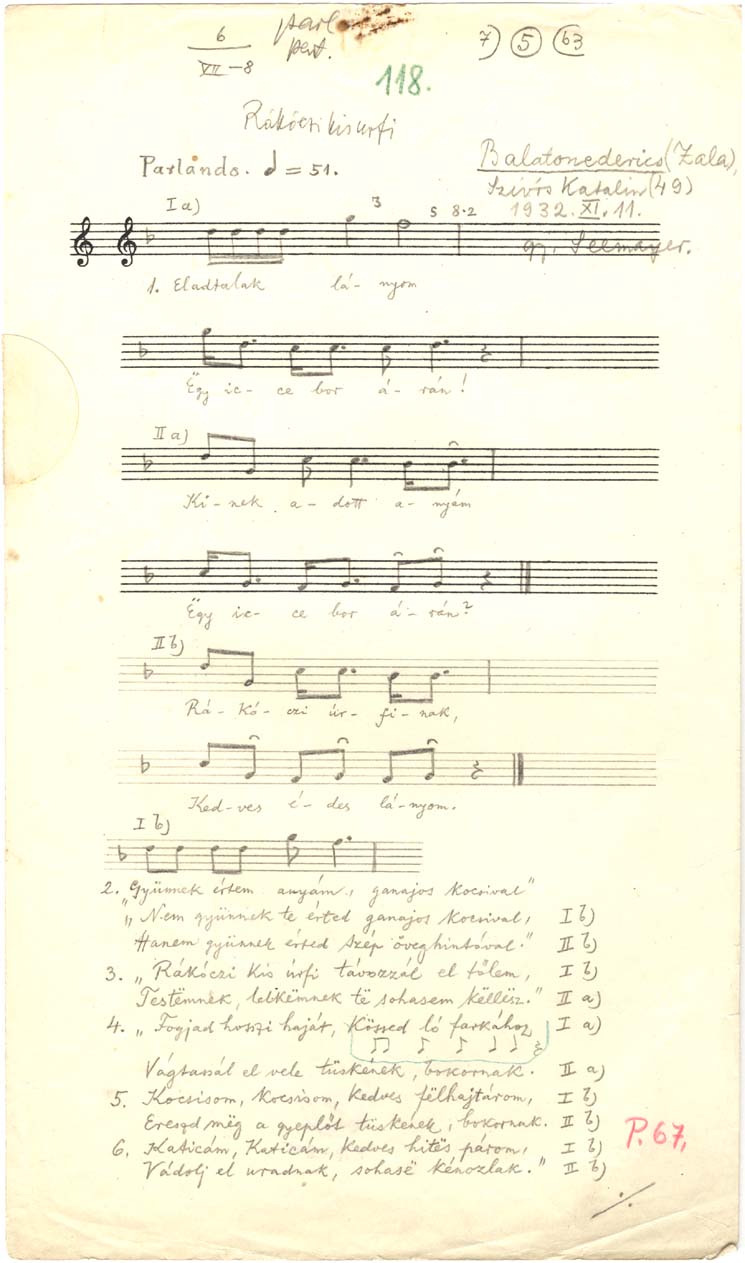 6
VII-8
parl
7) 5 63
118.
Rákóczi kis urfi
Parlando. = 51.
Balatonederics (Zala),
Szívós Katalin (49)
1932. XI. 11.
gy. Seemayer.
I a)
3
5 8·2
1. Eladtalak lá- nyom
Ëgy ic- ce bor á- rán!
II a)
Ki- nek a- dott a- nyám
Ëgy ic- ce bor á- rán?
II b)
Rá- kó- czi úr- fi- nak,
Ked- ves é- des lá- nyom.
I b)
2. Gyünnek értem anyám, ganajos kocsival"
„Nem gyünnek te érted ganajos kocsival, I b)
Hanem gyünnek érted szép öveghintóval." II b)
3. „Rákóczi kis úrfi távozzál el tőlem, I b)
Testëmnek, lelkëmnek të sohasem këllësz." II a)
4. „Fogjad hosszi haját, Kössed ló farkához I a)
Vágtassál el vele tüskének, bokornak. II a)
5. Kocsisom, kocsisom, kedves félhajtárom, I b)
Ereszd mëg a gyeplőt tüskének, bokornak. II b)
6. Katicám, Katicám, kedves hitës párom, I b)
Vádolj el uradnak, sohasë kénozlak." II b)
P. 67,
./.